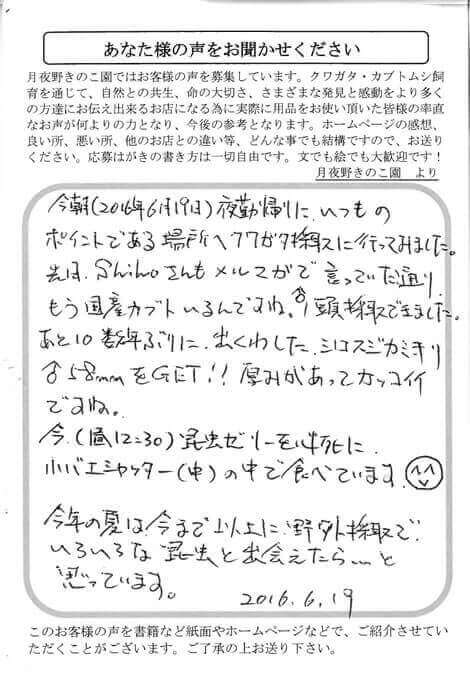 あなた様の声をお聞かせください
月夜野きのこ園ではお客様の声を募集しています。クワガタ・カブトムシ飼
育を通じて、自然との共生、命の大切さ、さまざまな発見と感動をより多く
の方達にお伝え出来るお店になる為に実際に用品をお使い頂いた皆様の率直
なお声が何よりの力となり、今後の参考となります。ホームページの感想、
良い所、悪い所、他のお店との違い等、どんな事でも結構ですので、お送り
ください。応募はがきの書き方は一切自由です。文でも絵でも大歓迎です！
月夜野きのこ園　より
今朝(2016年6月19日)夜勤帰りに、いつもの
ポイントである場所へクワガタ採集に行ってみました。
先日、Shihoさんもメルマガで言っていた通り、
もう国産カブトいるんですね。♂1頭採集できました。
あと10数年ぶりに、出くわした、シロスジカミキリ
♂58mmをGET!! 厚みがあってカッコイイ
ですね。
今、(昼12:30) 昆虫ゼリーを必死に
小バエシャッター(中)の中で食べています。
今年の夏は、今まで以上に、野外採集で、
いろいろな昆虫と出会えたら...と
思っています。
2016.6.19
このお客様の声を書籍など紙面やホームページなどで、ご紹介させてい
ただくことがございます。ご了承の上お送り下さい。